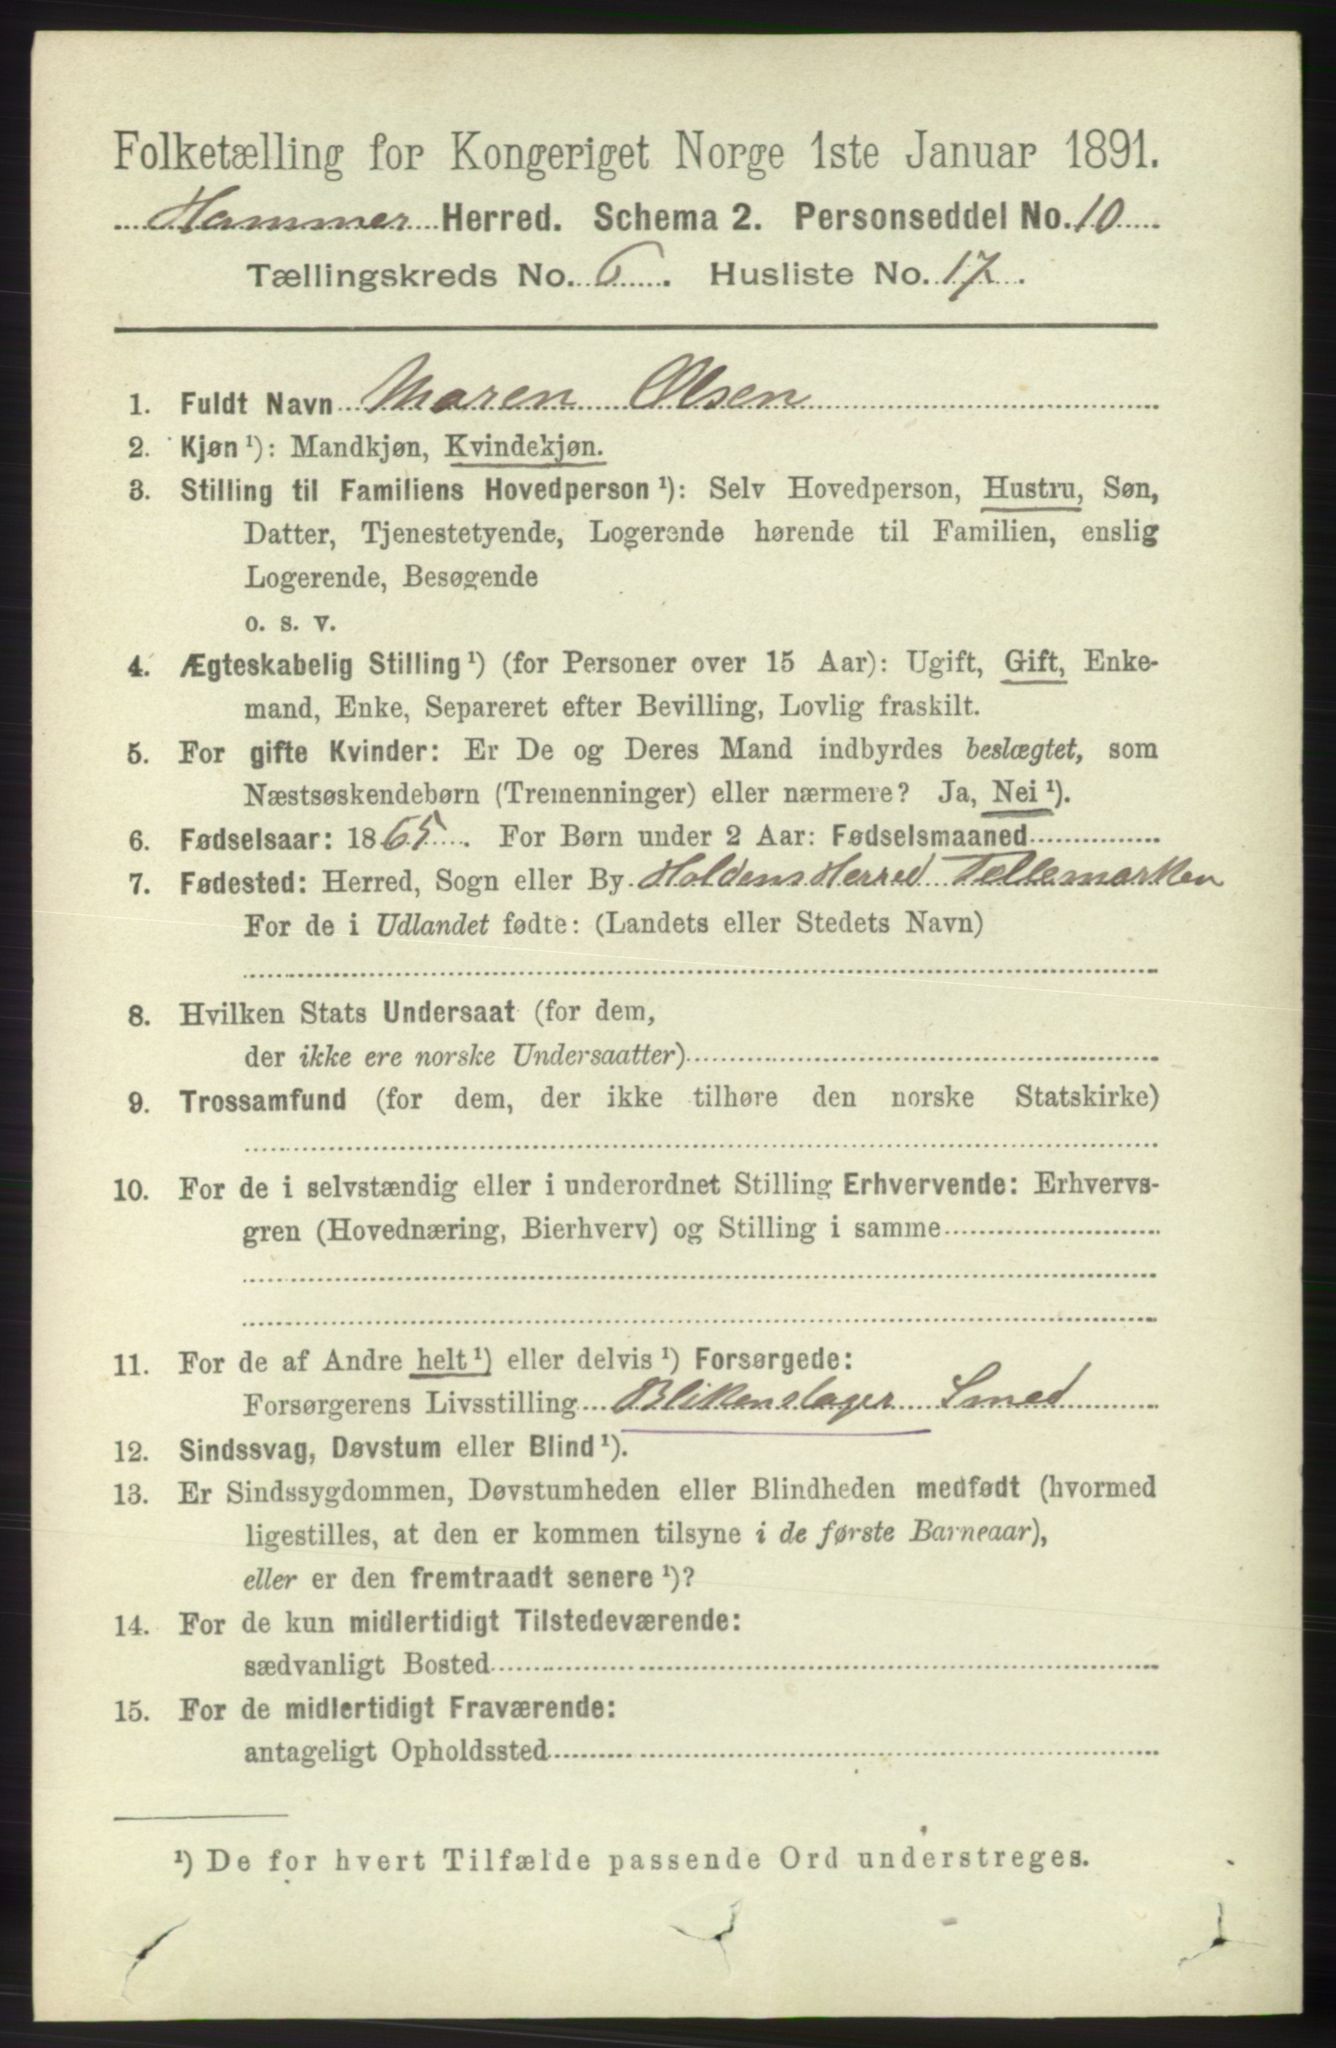 Folketælling for Kongeriget Norge 1ste Januar 1891.
Hammer Herred. Schema 2. Personseddel No. 10
Tællingskreds No. 6. Husliste No. 17.
1. Fuldt Navn Maren Olsen
2. Kjøn ¹): Mandkjøn, Kvindekjøn.
3. Stilling til Familiens Hovedperson ¹): Selv Hovedperson, Hustru, Søn,
Datter, Tjenestetyende, Logerende hørende til Familien, enslig
Logerende, Besøgende
o. s. v.
4. Ægteskabelig Stilling ¹) (for Personer over 15 Aar): Ugift, Gift, Enke-
mand, Enke, Separeret efter Bevilling, Lovlig fraskilt.
5. For gifte Kvinder: Er De og Deres Mand indbyrdes beslægtet, som
Næstsøskendebørn (Tremenninger) eller nærmere? Ja, Nei ¹).
6. Fødselsaar: 1865. For Børn under 2 Aar: Fødselsmaaned
7. Fødested: Herred, Sogn eller By Holdens Herred Tellemarken
For de i Udlandet fødte: (Landets eller Stedets Navn)
8. Hvilken Stats Undersaat (for dem,
der ikke ere norske Undersaatter)
9. Trossamfund (for dem, der ikke tilhøre den norske Statskirke)
10. For de i selvstændig eller i underordnet Stilling Erhvervende: Erhvervs-
gren (Hovednæring, Bierhverv) og Stilling i samme
11. For de af Andre helt ¹) eller delvis ¹) Forsørgede:
Forsørgerens Livsstilling Blikenslager Smed
12. Sindssvag, Døvstum eller Blind ¹).
13. Er Sindssygdommen, Døvstumheden eller Blindheden medfødt (hvormed
ligestilles, at den er kommen tilsyne i de første Barneaar),
eller er den fremtraadt senere ¹)?
14. For de kun midlertidigt Tilstedeværende:
sædvanligt Bosted
15. For de midlertidigt Fraværende:
antageligt Opholdssted
¹) De for hvert Tilfælde passende Ord understreges.